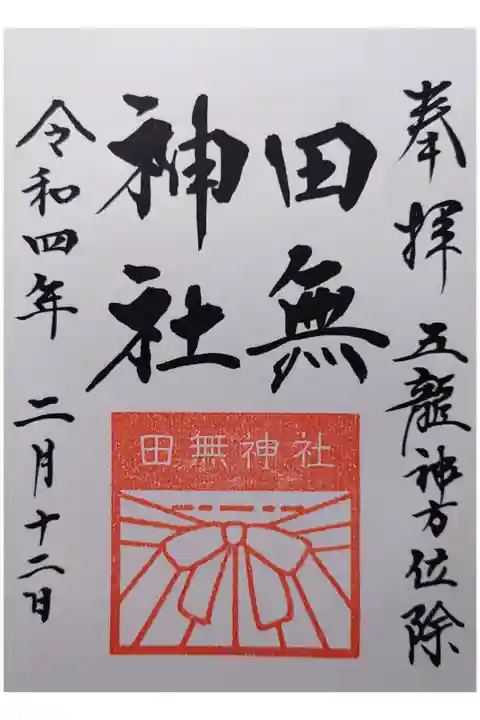 奉拝 五龍神方位除
田無
神社
令和四年 二月十二日
田無神社